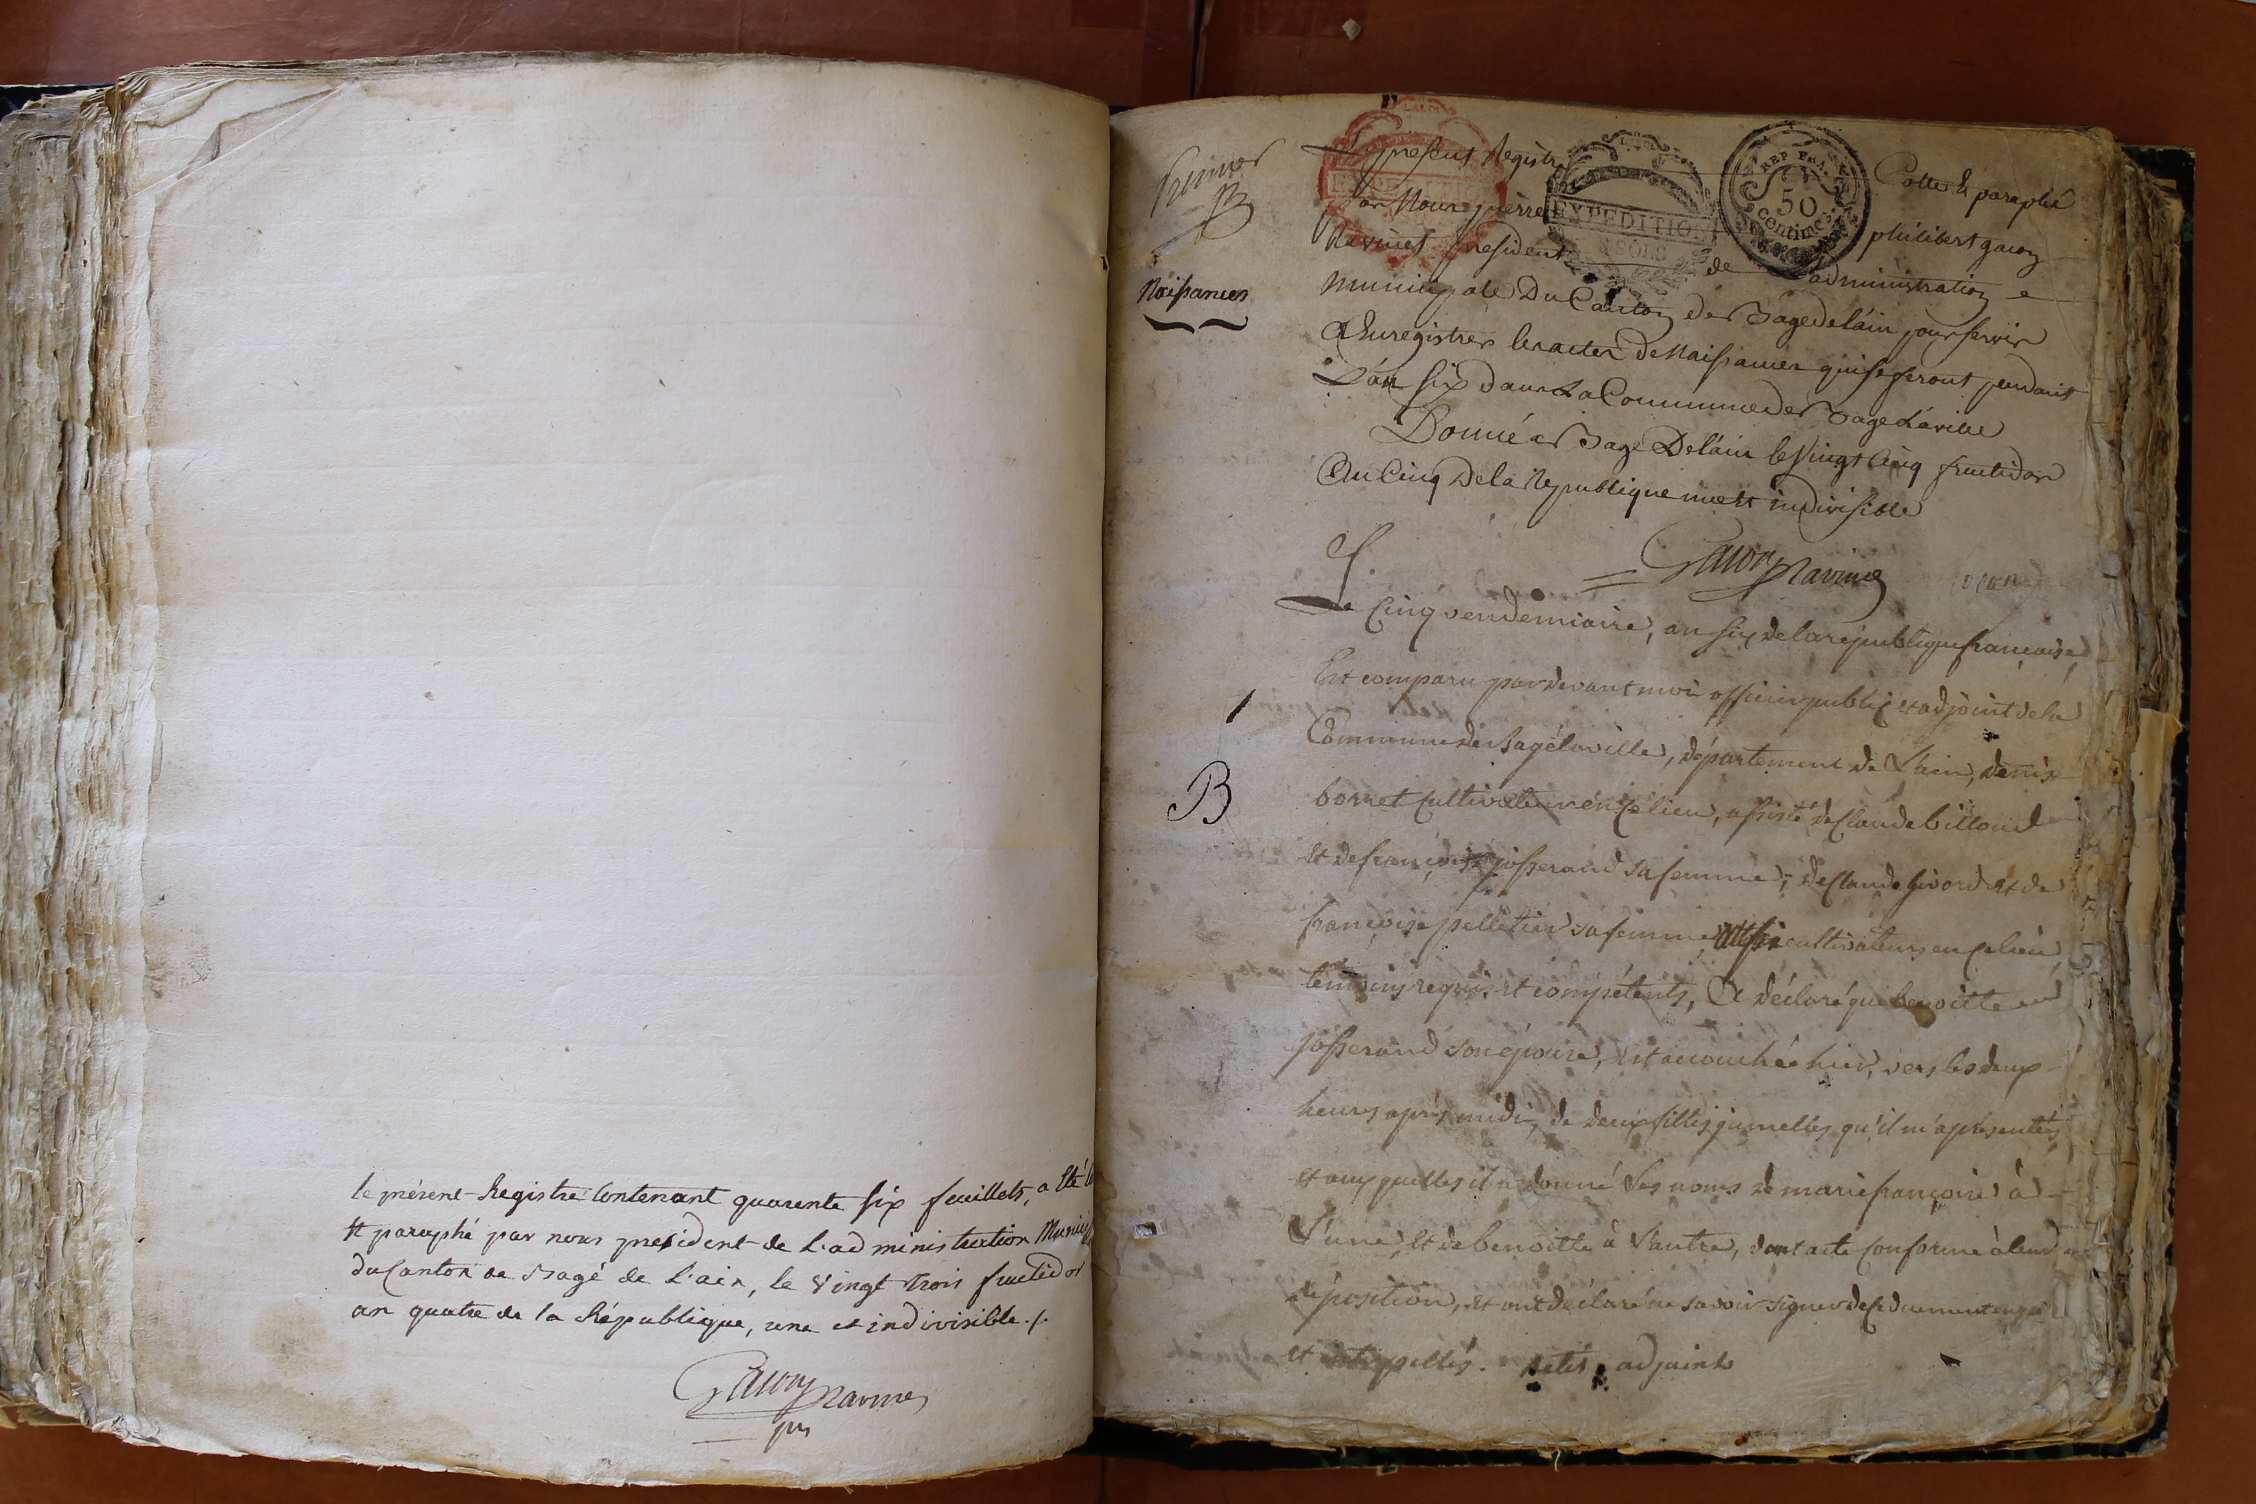 le présent Registre Contenant quarente six feuillets, a été
et paraphé par nous président de L'administration
du Canton de Bagé de L'ain, le vingt trois fructidor
an quatre de la République, une et indivisible ./.
Gavon Ravinet
Premier
Naissances
Le present Registre Cotté & paraphé
Par Nous pierre philibert gavon
Ravinet president de Ladministration
Municipale Du Canton de Bage de l'ain pour servir
A Enregistrer les actes de Naissances qui se feront pendant
L'an six dans La Commune de Bage La ville
Donné a Bage De l'ain le vingt Cinq fructidor
An Cinq De la Republique une et indivisible
Gavon Ravinet
EXPEDITION
REP FRA
50
centimes
Le Cinq vendemiaire, an six de la république française,
Est comparu par devant moi officier public et adjoint de la
Commune de Bagé la ville, département de l'ain, denis
borret Cultivateur en Ce lieu, assisté de Claude billoud
et de françoise josserand sa femme; de Claude givord et de
françoise pelletier sa femme, aussi cultivateurs en ce lieu,
temoins requis et compétents, A déclaré que benoitte
josserand son épouse, est accouchée hier, vers les deux
heures après midi, de deux filles jumelles qu'il m'a présentées,
et aux quelles il a donné les noms de marie françoise à
l'une, et de benoitte à l'autre, dont acte Conforme à leur
déposition, et ont déclaré ne savoir signer de ce duement enquis
et interpellés. adjoint
1
B